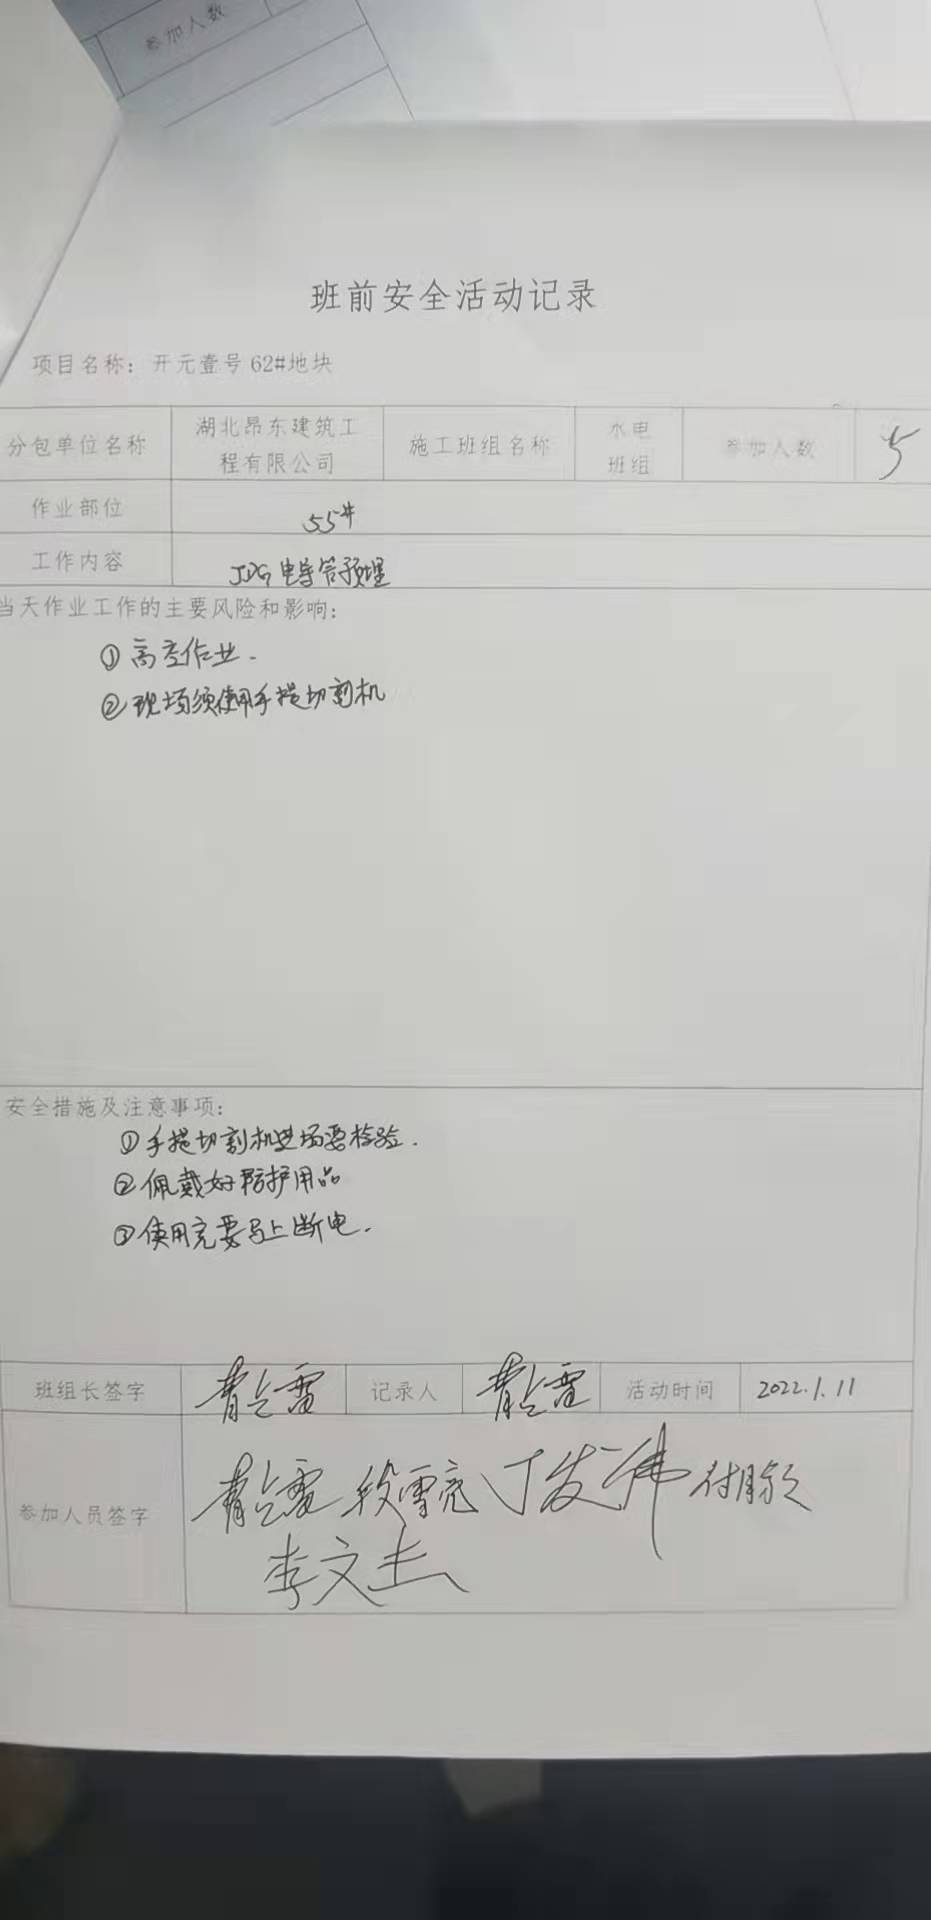 参加人数
班前安全活动记录
项目名称：开元壹号62#地块
分包单位名称 湖北昂东建筑工程有限公司 施工班组名称 水电班组 参加人数 5
作业部位 55#
工作内容 JDG电导管预埋
当天作业工作的主要风险和影响：
①高空作业.
②现场须使用手提切割机
安全措施及注意事项：
①手提切割机进场要检验.
②佩戴好防护用品
③使用完要马上断电.
班组长签字 记录人 活动时间 2022.1.11
参加人员签字 段雪亮 丁发伟
李文杰